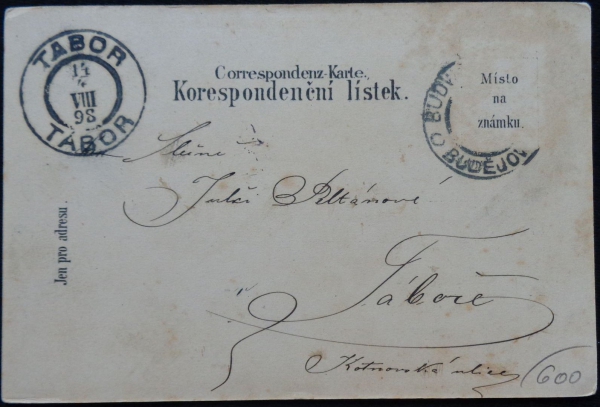 TABOR
14
VIII
98
TÁBOR
Correspondenz-Karte.
Korespondenční lístek.
Místo
na
známku.
BUDĚJOV
Jen pro adresu.
Slečně
Peltánové
Táboře
Kotnovská ulice
600